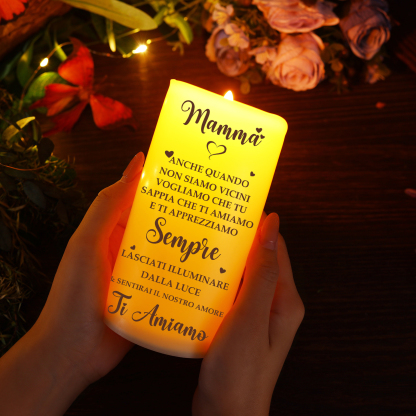 Mamma
ANCHE QUANDO
NON SIAMO VICINI
VOGLIAMO CHE TU
SAPPIA CHE TI AMIAMO
E TI APPREZZIAMO
Sempre
LASCIATI ILLUMINARE
DALLA LUCE
& SENTIRAI IL NOSTRO AMORE
Ti Amiamo